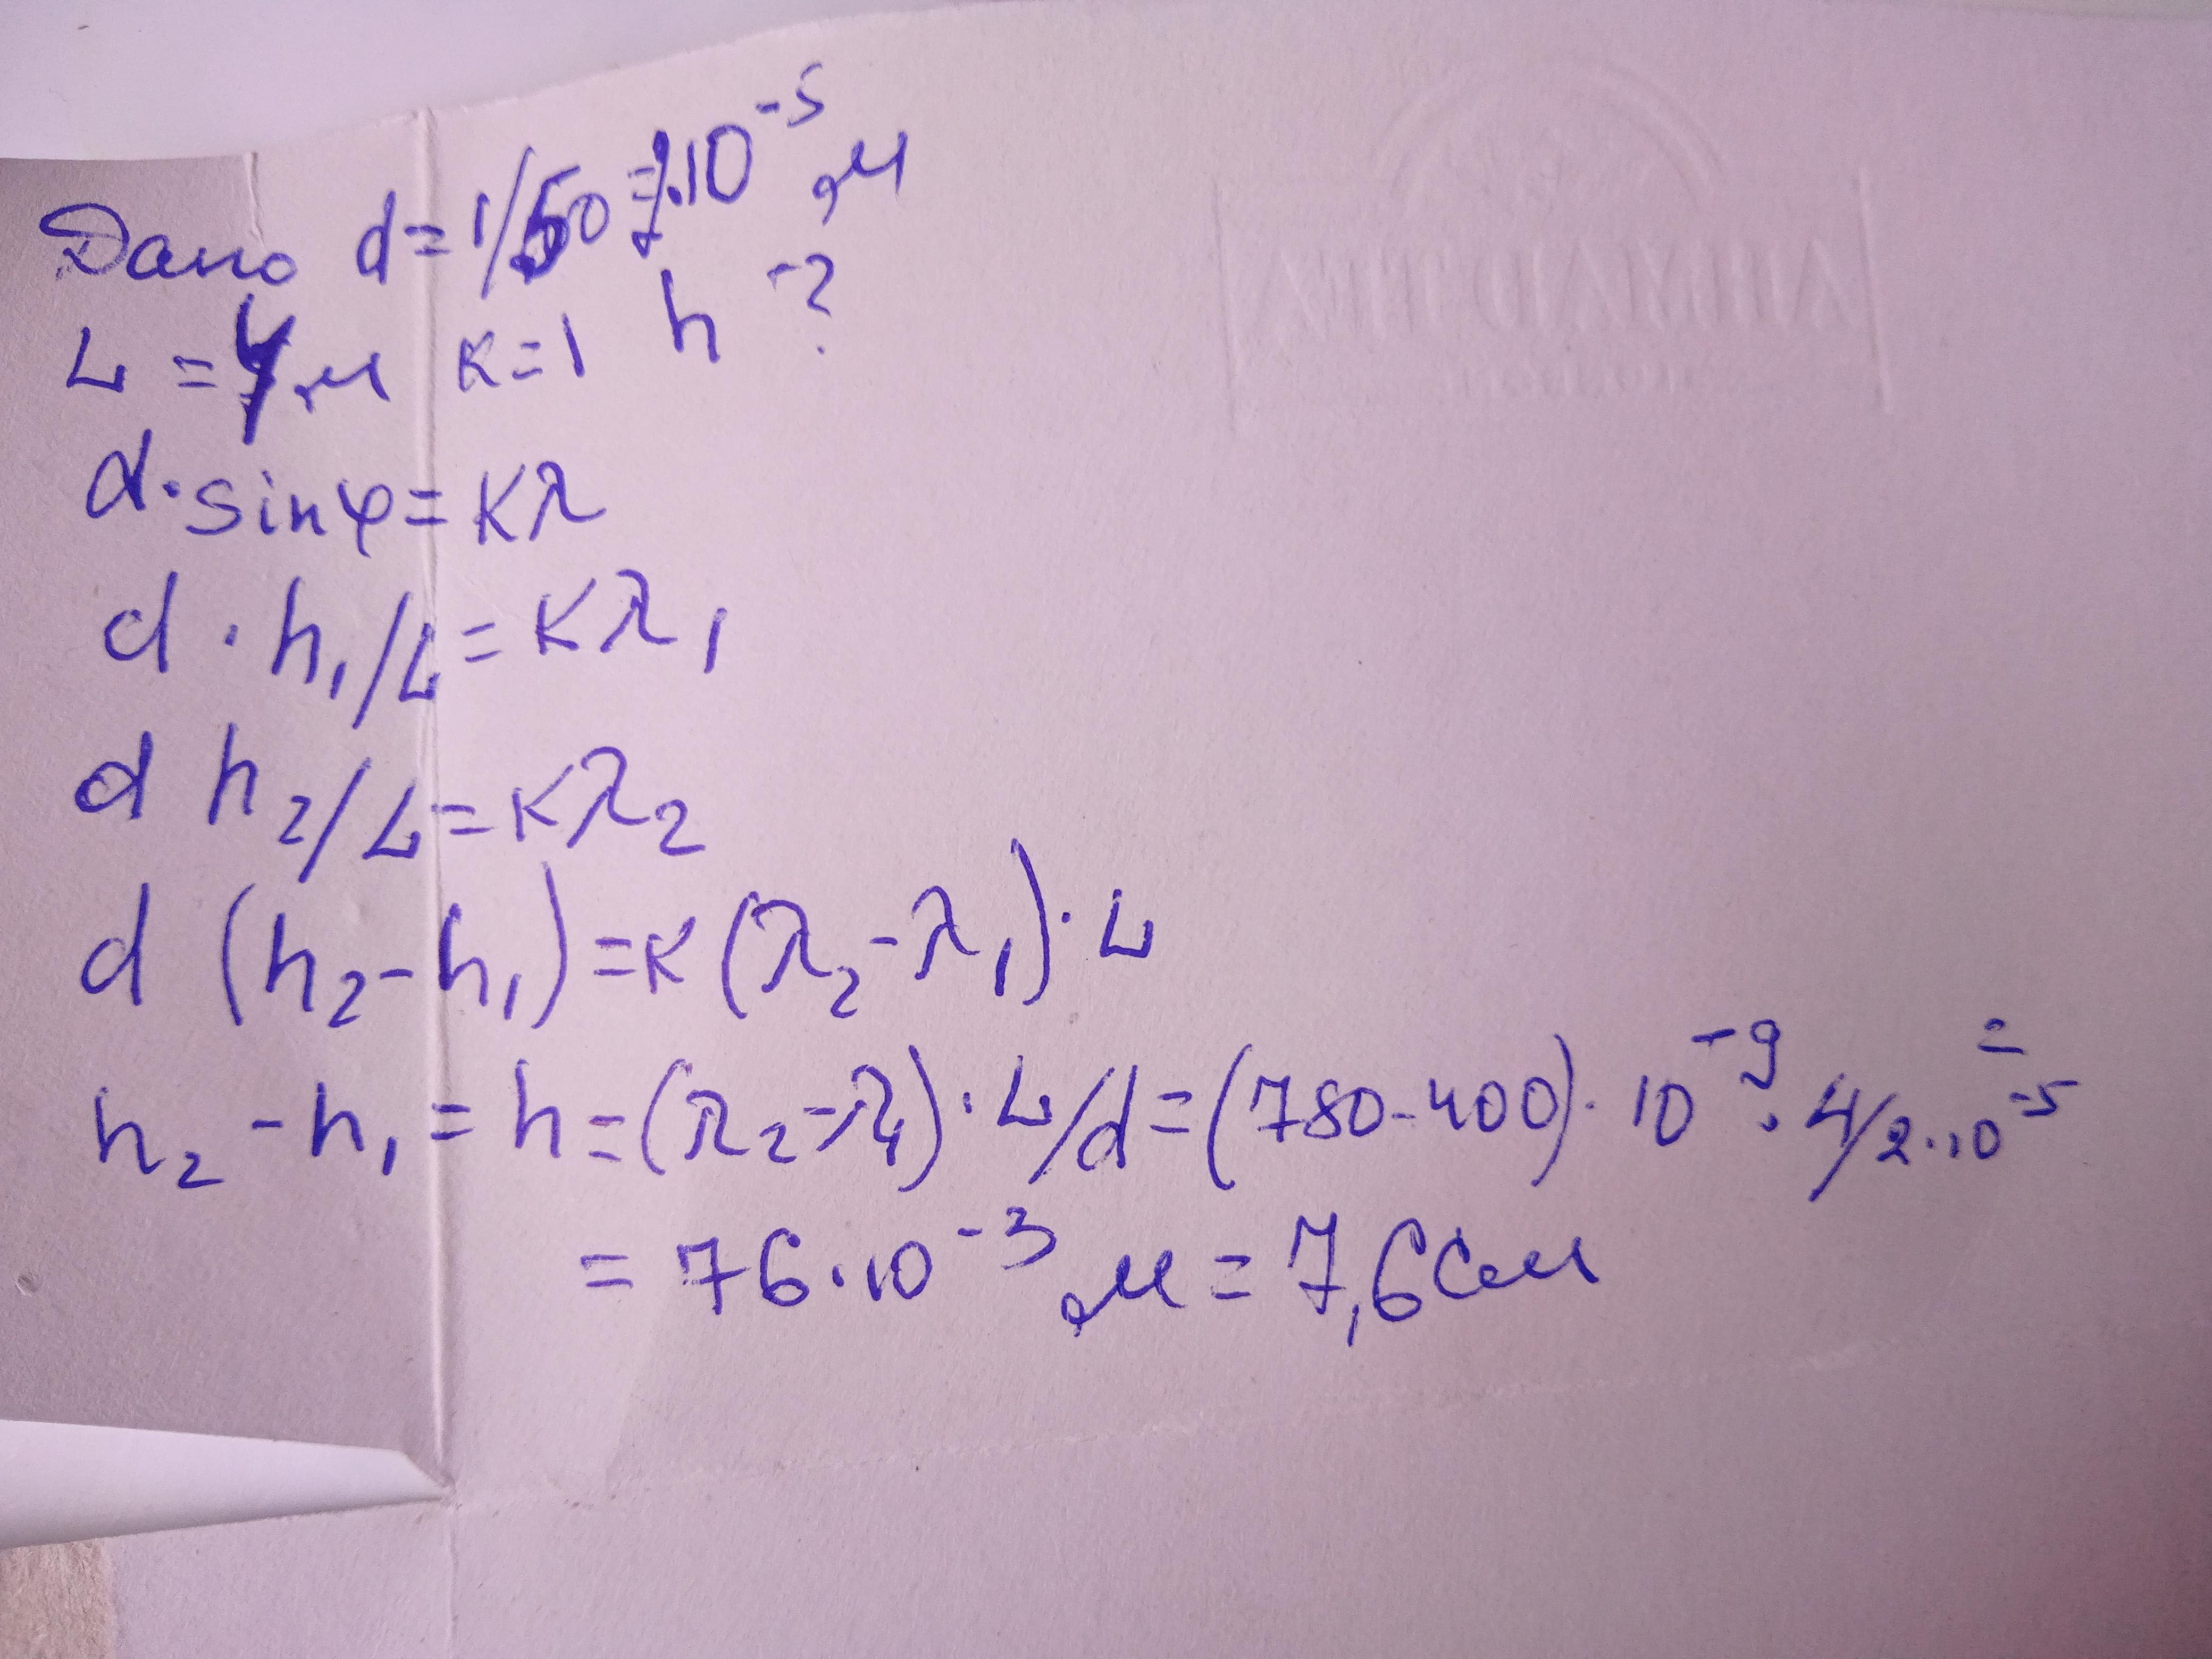 Дано d=1/50=2·10⁻⁵ м
L=4 м к=1 h -?
d·sinφ=Kλ
d·h₁/L=Kλ₁
d h₂/L=Kλ₂
d (h₂-h₁)=K(λ₂-λ₁)·L
h₂-h₁=h=(λ₂-λ₁)·L/d=(780-400)·10⁻⁹·4/2·10⁻⁵=
=76·10⁻³ м=7,6см